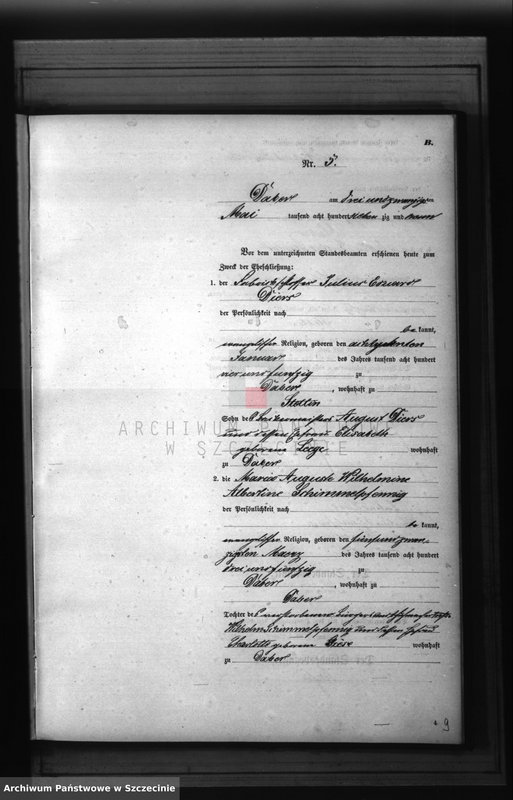 B.
Nr. 5.
Daber am drei und zwanzigsten
Mai tausend acht hundert zig und
Vor dem unterzeichneten Standesbeamten erschienen heute zum
Zweck der Eheschließung:
1. der Julius Eduard
Diers
der Persönlichkeit nach
be kannt,
evangelischer Religion, geboren den achtzehnten
Januar des Jahres tausend acht hundert
vier und funfzig zu
Daber, wohnhaft zu
Stettin
Sohn des August Diers
und dessen Ehefrau Elisabeth
geborene wohnhaft
zu Daber
2. die Maria Auguste Wilhelmine
Albertine Schimmelpfennig
der Persönlichkeit nach
be kannt,
evangelischer Religion, geboren den fünf und zwan-
zigsten Maerz des Jahres tausend acht hundert
drei und funfzig zu
Daber, wohnhaft zu
Daber
Tochter des verstorbenen Bürgers und
Wilhelm Schimmelpfennig und dessen Ehefrau
Charlotte geborene wohnhaft
zu Daber
9
ARCHIWUM PAŃSTWOWE
W SZCZECINIE
Archiwum Państwowe w Szczecinie